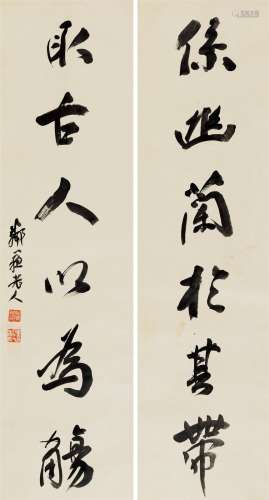 係幽蘭於其帶
取古人以為觴
鄰蘇老人